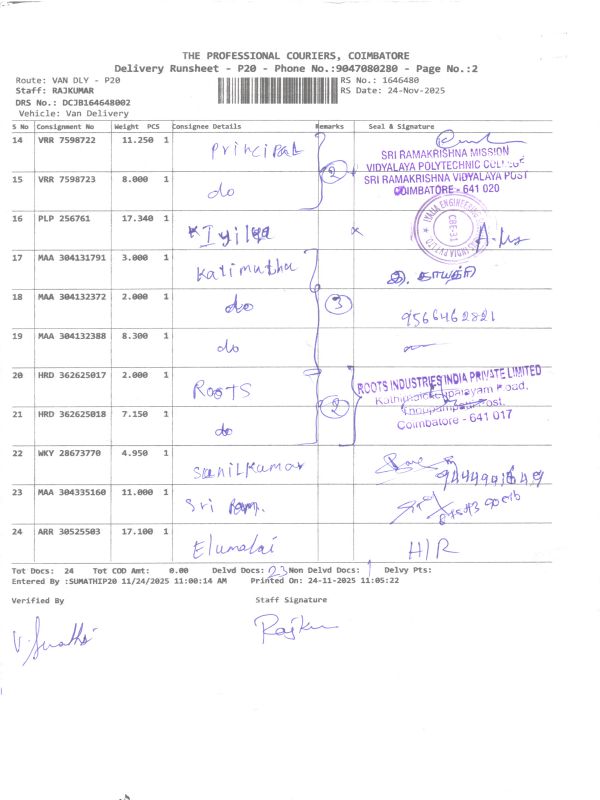 THE PROFESSIONAL COURIERS, COIMBATORE
Delivery Runsheet - P20 - Phone No.:9047080280 - Page No.:2
Route: VAN DLY - P20 RS No.: 1646480
Staff: RAJKUMAR RS Date: 24-Nov-2025
DRS No.: DCJB164648002
Vehicle: Van Delivery
S No Consignment No Weight PCS Consignee Details Remarks Seal & Signature
14 VRR 7598722 11.250 1 principal
SRI RAMAKRISHNA MISSION
VIDYALAYA POLYTECHNIC COLLEGE
15 VRR 7598723 8.000 1 do 2 SRI RAMAKRISHNA VIDYALAYA POST
COIMBATORE - 641 020
16 PLP 256761 17.340 1
17 MAA 304131791 3.000 1 Kalimuthu
18 MAA 304132372 2.000 1 do 3
9566462821
19 MAA 304132388 8.300 1 do
20 HRD 362625017 2.000 1 ROOTS ROOTS INDUSTRIES INDIA PRIVATE LIMITED
21 HRD 362625018 7.150 1 do 2
Coimbatore - 641 017
22 WKY 28673770 4.950 1 sunilkumar
23 MAA 304335160 11.000 1 Sri
24 ARR 30525503 17.100 1 Elumalai H/R
Tot Docs: 24 Tot COD Amt: 0.00 Delvd Docs: 23 Non Delvd Docs: 1 Delvy Pts:
Entered By :SUMATHIP20 11/24/2025 11:00:14 AM Printed On: 24-11-2025 11:05:22
Verified By Staff Signature